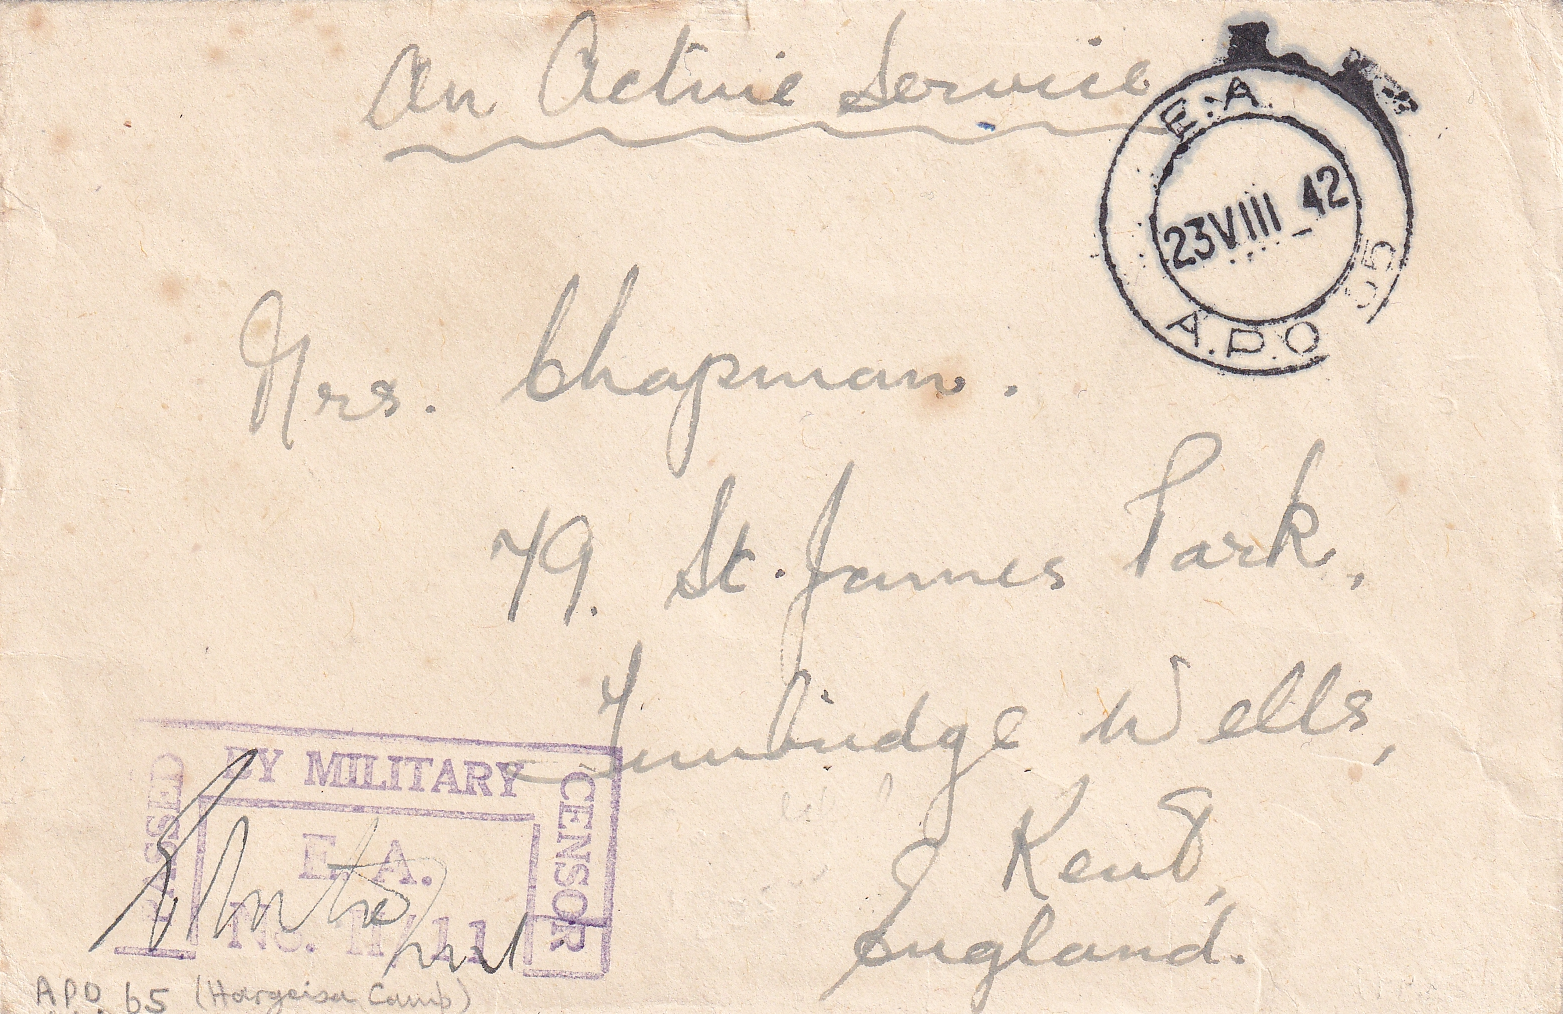 On Active Service
E.A.
23 VIII 42
A.P.O 65
Mrs. Chapman.
79. St. James Park,
Tunbridge Wells,
Kent,
England.
PASSED BY MILITARY CENSOR
E. A.
No. 11/11
A.P.O. 65 (Hargeisa Camp)